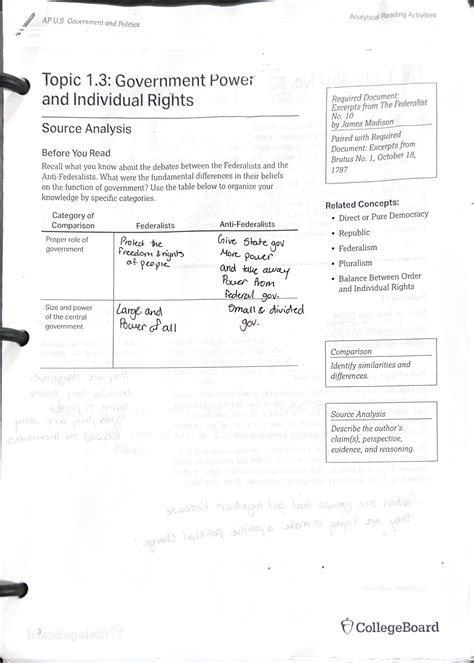 AP U.S. Government and Politics
Analytical Reading Activities
Topic 1.3: Government Power
and Individual Rights
Source Analysis
Before You Read
Recall what you know about the debates between the Federalists and the
Anti-Federalists. What were the fundamental differences in their beliefs
on the function of government? Use the table below to organize your
knowledge by specific categories.
Category of
Comparison
Federalists
Anti-Federalists
Proper role of
government
Protect the
freedom & rights
of people
Give State gov
More power
and take away
Power from
federal gov.
Size and power
of the central
government
Large and
Power of all
Small & divided
gov.
Required Document:
Excerpts from The Federalist
No. 10
by James Madison
Paired with Required
Document: Excerpts from
Brutus No. 1, October 18,
1787
Related Concepts:
• Direct or Pure Democracy
• Republic
• Federalism
• Pluralism
• Balance Between Order
and Individual Rights
Comparison
Identify similarities and
differences.
Source Analysis
Describe the author's
claim(s), perspective,
evidence, and reasoning.
factions are groups that get together because
they are trying to make a positive political change
CollegeBoard